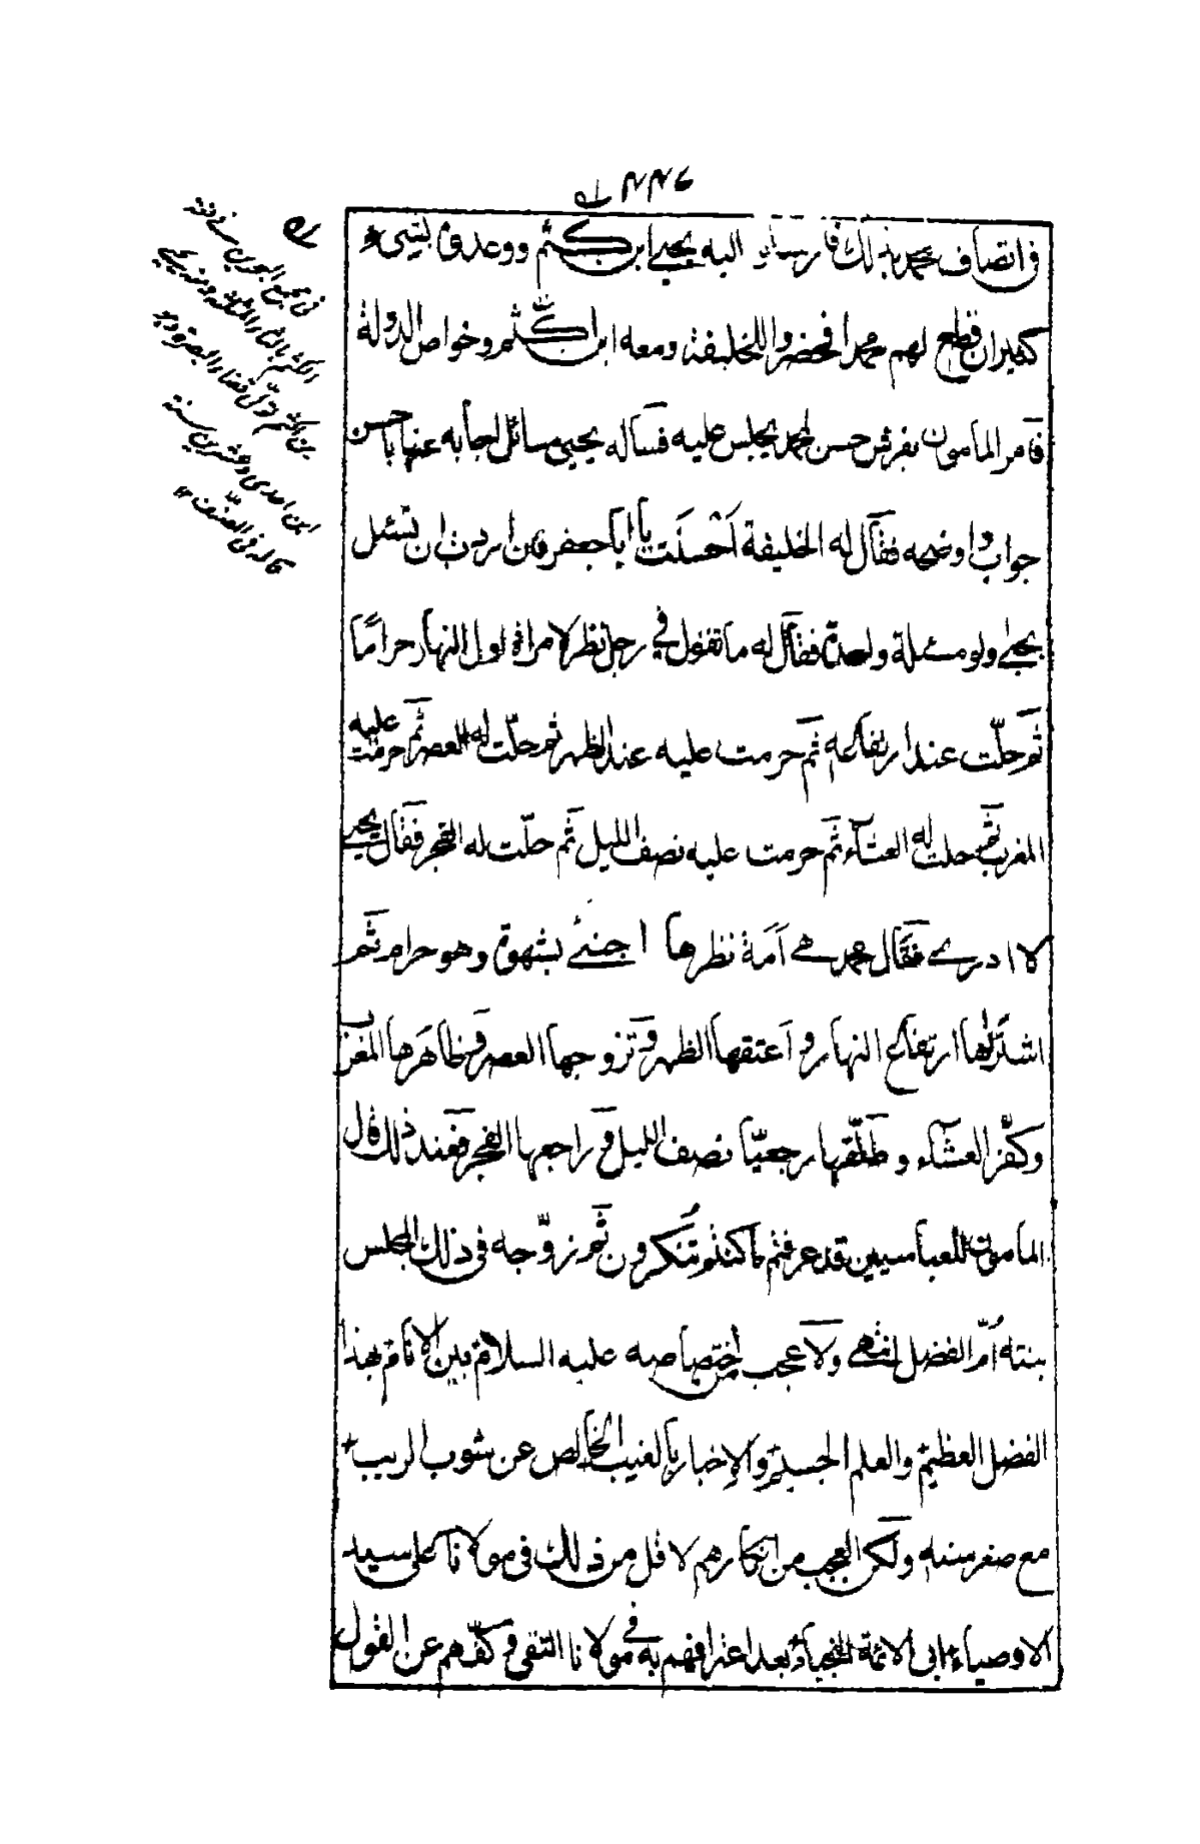 ۲۲۶
في اتصاف محمد بذلك فارسلوا اليه يحيى ابن اكثم ووعدوه بشيء
كثيران قطع لهم محمدا فحضروا للخليفة ومعه ابن اكثم وخواص الدولة
فامر المامون بفرش حسن لمحمد يجلس عليه فساله يحيى مسائل اجابه عنها باحسن
جواب واوضحه فقال له الخليفة احسنت يا ابا جعفر فان اردت ان تسئل
يحيى ولو مسئلة واحدة فقال له ما تقول في رجل نظر لامراة اول النهار حراما
ثم حلّت عند ارتفاعه ثم حرمت عليه عند الظهر ثم حلّت له العصر ثم حرمت عليه
المغرب ثم حلت له العشاء ثم حرمت عليه نصف الليل ثم حلّت له الفجر فقال يحيى
لا ادري فقال محمد هي اَمَة نظرها اجنبي بشهوة وهو حرام ثم
اشتراها ارتفاع النهار واعتقها الظهر وتزوجها العصر وظاهَرها المغرب
وكفّر العشاء وطلّقها رجعيّا نصف الليل وراجعها الفجر فعند ذلك قال
المامون للعباسيين قد عرفتم ما كنتم تُنكرون ثم زوّجه في ذلك المجلس
بنته اُمّ الفضل انتهى ولا عجب من اختصاصه عليه السلام بين الانام بهذا
الفضل العظيم والعلم الجسيم والاخبار بالغيب الخالص عن شوب الريب
مع صغر سنه ولكن العجب من انكارهم لاقل من ذلك في مولانا علي سيد
الاوصياء ابي الائمة النجباء بعد اعترافهم به في مولانا التقي وكفّهم عن القول
في مجمع البحرين في لغة
اكثم بالثاء المثلثة ومنه يحيى
بن اكثم ولّي قضاء البصرة وهو
ابن احدى وعشرين سنة
قاله في المصنّف ۱۲